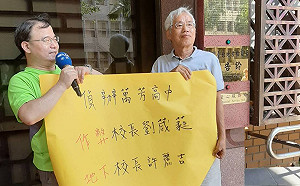 偵辦萬芳高中
作弊校長劉葳蕤
地下校長許蕭吉